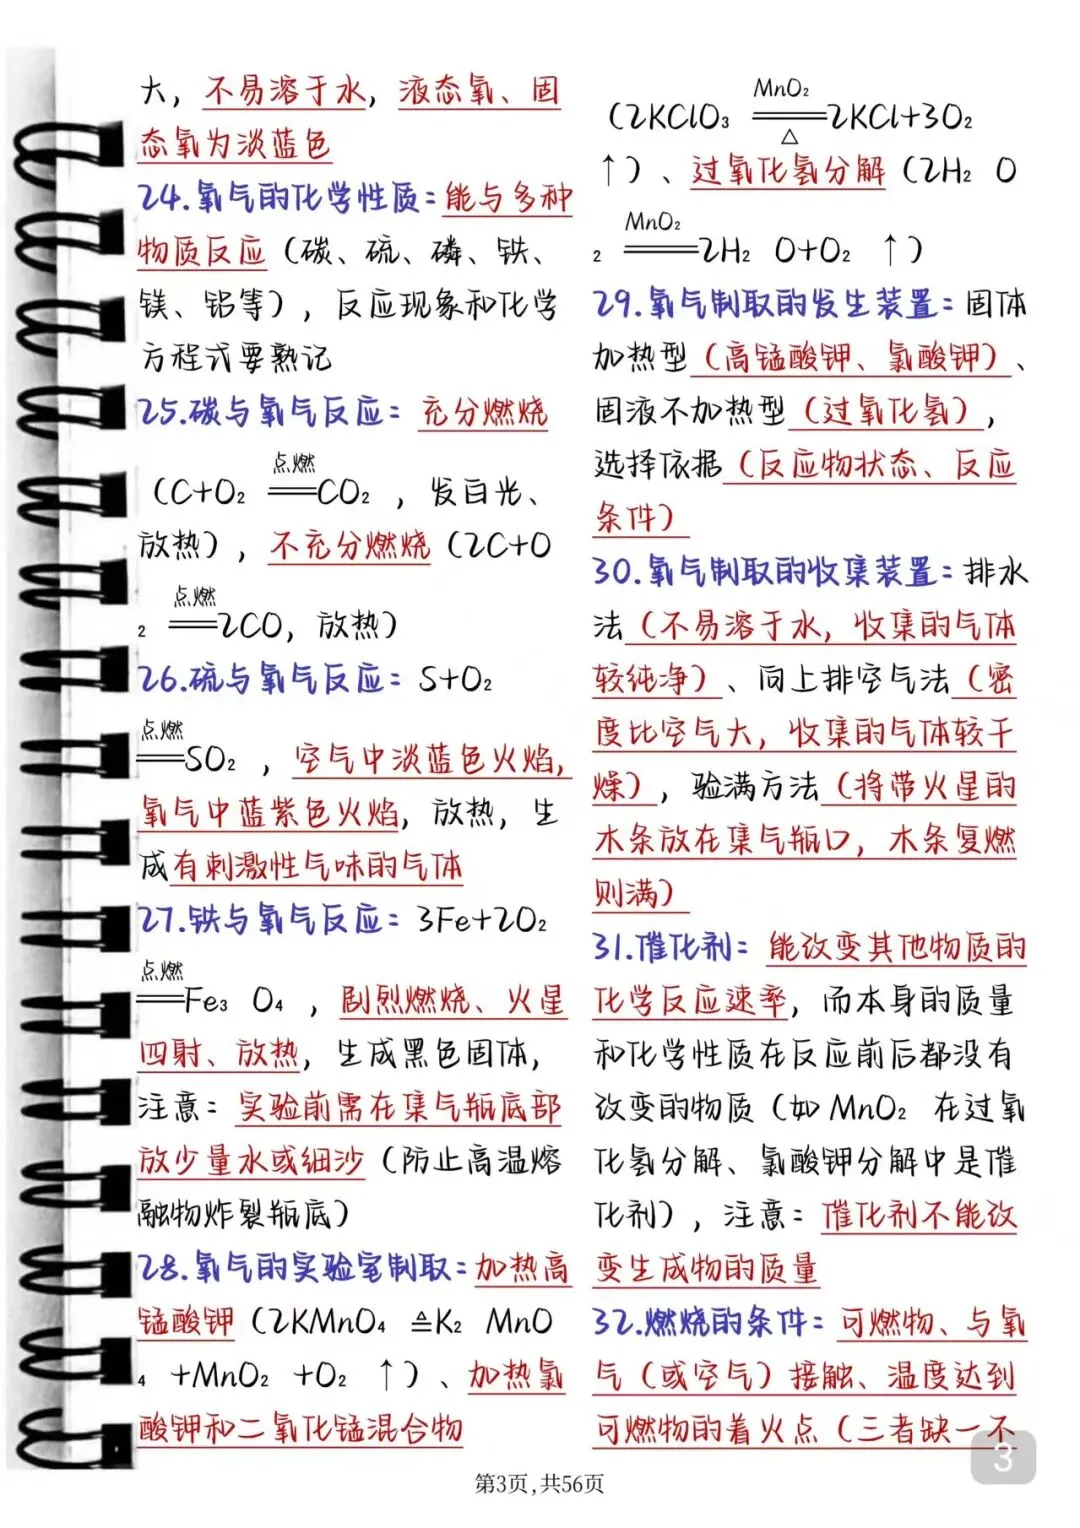 大，不易溶于水，液态氧、固
态氧为淡蓝色
24.氧气的化学性质：能与多种
物质反应（碳、硫、磷、铁、
镁、铝等），反应现象和化学
方程式要熟记
25.碳与氧气反应：充分燃烧
点燃
（C+O₂ ══CO₂ ，发白光、
放热），不充分燃烧（2C+O
点燃
₂ ══2CO，放热）
26.硫与氧气反应：S+O₂
点燃
══SO₂ ，空气中淡蓝色火焰，
氧气中蓝紫色火焰，放热，生
成有刺激性气味的气体
27.铁与氧气反应：3Fe+2O₂
点燃
══Fe₃ O₄ ，剧烈燃烧、火星
四射、放热，生成黑色固体，
注意：实验前需在集气瓶底部
放少量水或细沙（防止高温熔
融物炸裂瓶底）
28.氧气的实验室制取：加热高
锰酸钾（2KMnO₄ ≜K₂ MnO
₄ +MnO₂ +O₂ ↑）、加热氯
酸钾和二氧化锰混合物
MnO₂
（2KClO₃ ══2KCl+3O₂
△
↑）、过氧化氢分解（2H₂ O
MnO₂
₂ ══2H₂ O+O₂ ↑）
29.氧气制取的发生装置：固体
加热型（高锰酸钾、氯酸钾）、
固液不加热型（过氧化氢），
选择依据（反应物状态、反应
条件）
30.氧气制取的收集装置：排水
法（不易溶于水，收集的气体
较纯净）、向上排空气法（密
度比空气大，收集的气体较干
燥），验满方法（将带火星的
木条放在集气瓶口，木条复燃
则满）
31.催化剂：能改变其他物质的
化学反应速率，而本身的质量
和化学性质在反应前后都没有
改变的物质（如MnO₂ 在过氧
化氢分解、氯酸钾分解中是催
化剂），注意：催化剂不能改
变生成物的质量
32.燃烧的条件：可燃物、与氧
气（或空气）接触、温度达到
可燃物的着火点（三者缺一不
3
第3页，共56页